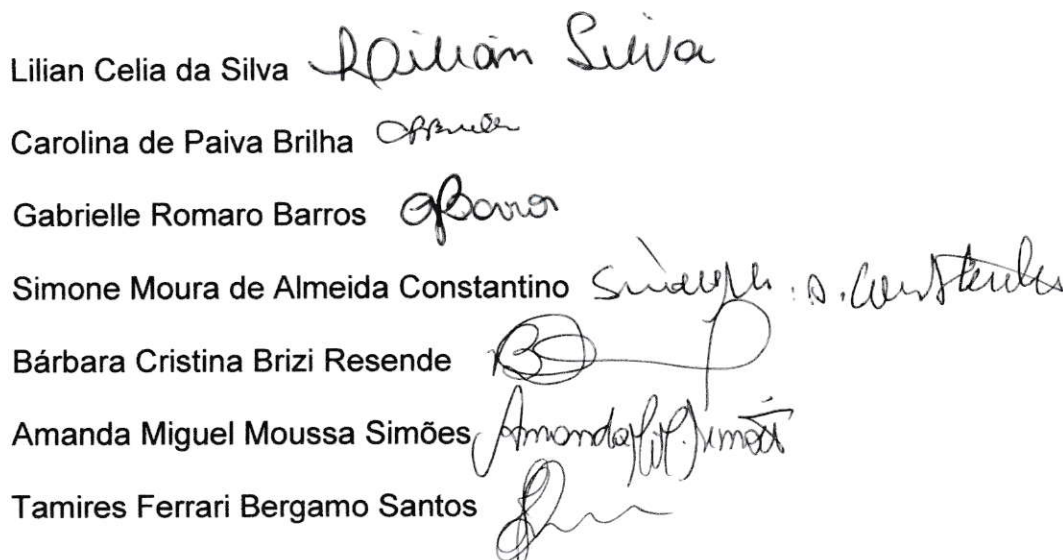 Lilian Celia da Silva Lilian Silva
Carolina de Paiva Brilha
Gabrielle Romaro Barros GBarros
Simone Moura de Almeida Constantino
Bárbara Cristina Brizi Resende
Amanda Miguel Moussa Simões Amanda
Tamires Ferrari Bergamo Santos